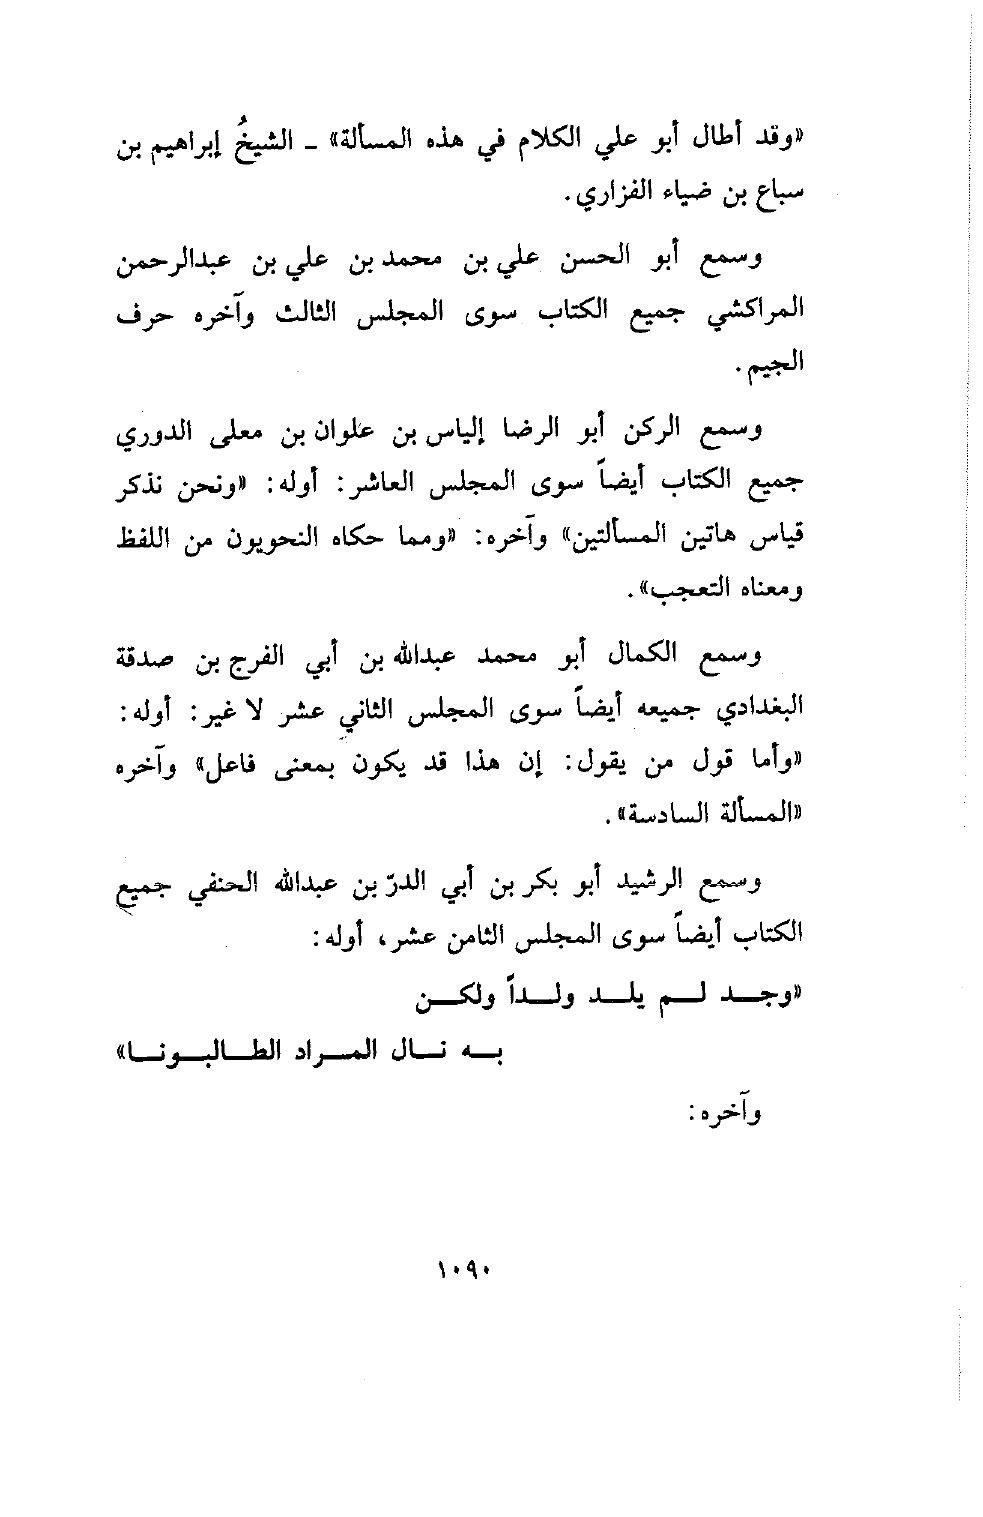 «وقد أطال أبو علي الكلام في هذه المسألة» ـ الشيخُ إبراهيم بن
سباع بن ضياء الفزاري.
وسمع أبو الحسن علي بن محمد بن علي بن عبدالرحمن
المراكشي جميع الكتاب سوى المجلس الثالث وآخره حرف
الجيم.
وسمع الركن أبو الرضا إلياس بن علوان بن معلى الدوري
جميع الكتاب أيضاً سوى المجلس العاشر: أوله: «ونحن نذكر
قياس هاتين المسألتين» وآخره: «ومما حكاه النحويون من اللفظ
ومعناه التعجب».
وسمع الكمال أبو محمد عبدالله بن أبي الفرج بن صدقة
البغدادي جميعه أيضاً سوى المجلس الثاني عشر لا غير: أوله:
«وأما قول من يقول: إن هذا قد يكون بمعنى فاعل» وآخره
«المسألة السادسة».
وسمع الرشيد أبو بكر بن أبي الدرّ بن عبدالله الحنفي جميع
الكتاب أيضاً سوى المجلس الثامن عشر، أوله:
«وجـــد لـــم يلـــد ولـــداً ولكـــن
بـــه نـــال المـــراد الطـــالبـــونـــا»
وآخره:
١٠٩٠